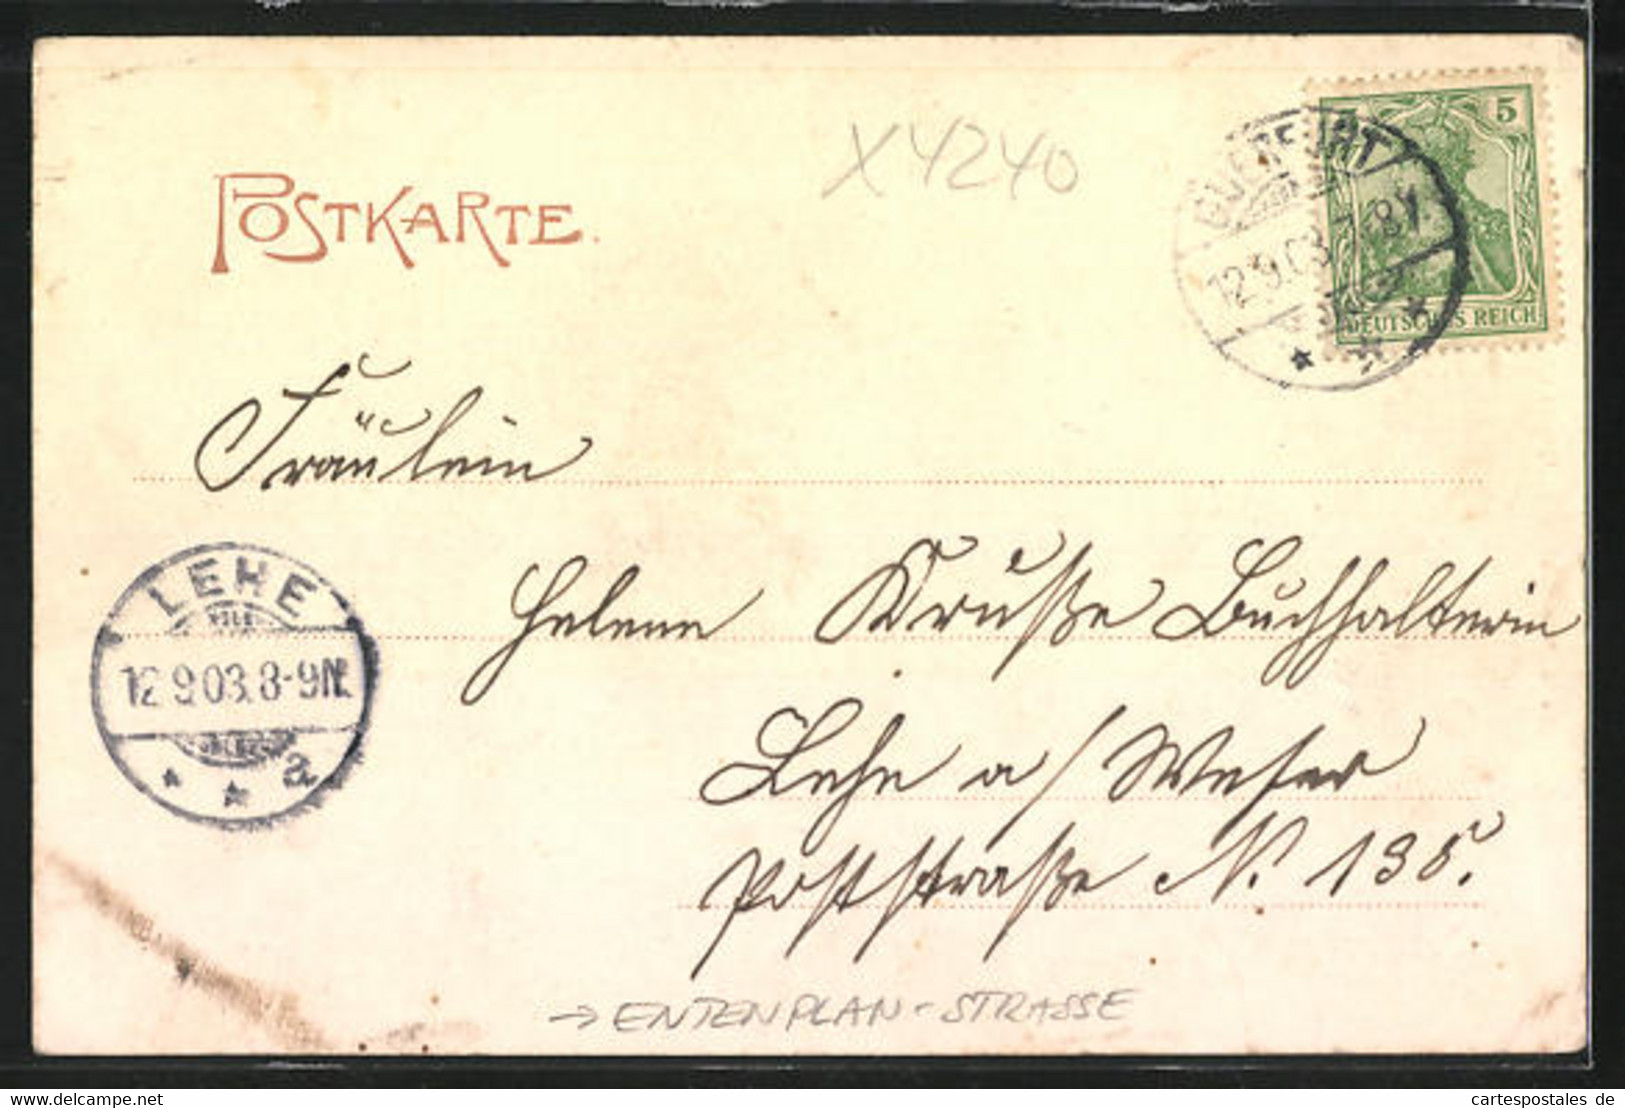 POSTKARTE.
X4240
5
QUERFURT
12.9.03. 7-8V.
DEUTSCHES REICH
Fräulein
Helene Kruße Buchhalterin
Lehe a/Weser
Poststraße N. 135.
LEHE
12.9.03. 8-9N.
a
→ ENTENPLAN-STRASSE
cartespostales de
www.delcampe.net